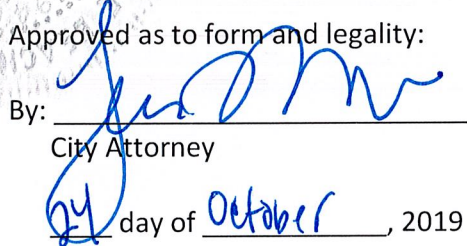 Approved as to form and legality:
By:
City Attorney
24 day of October, 2019